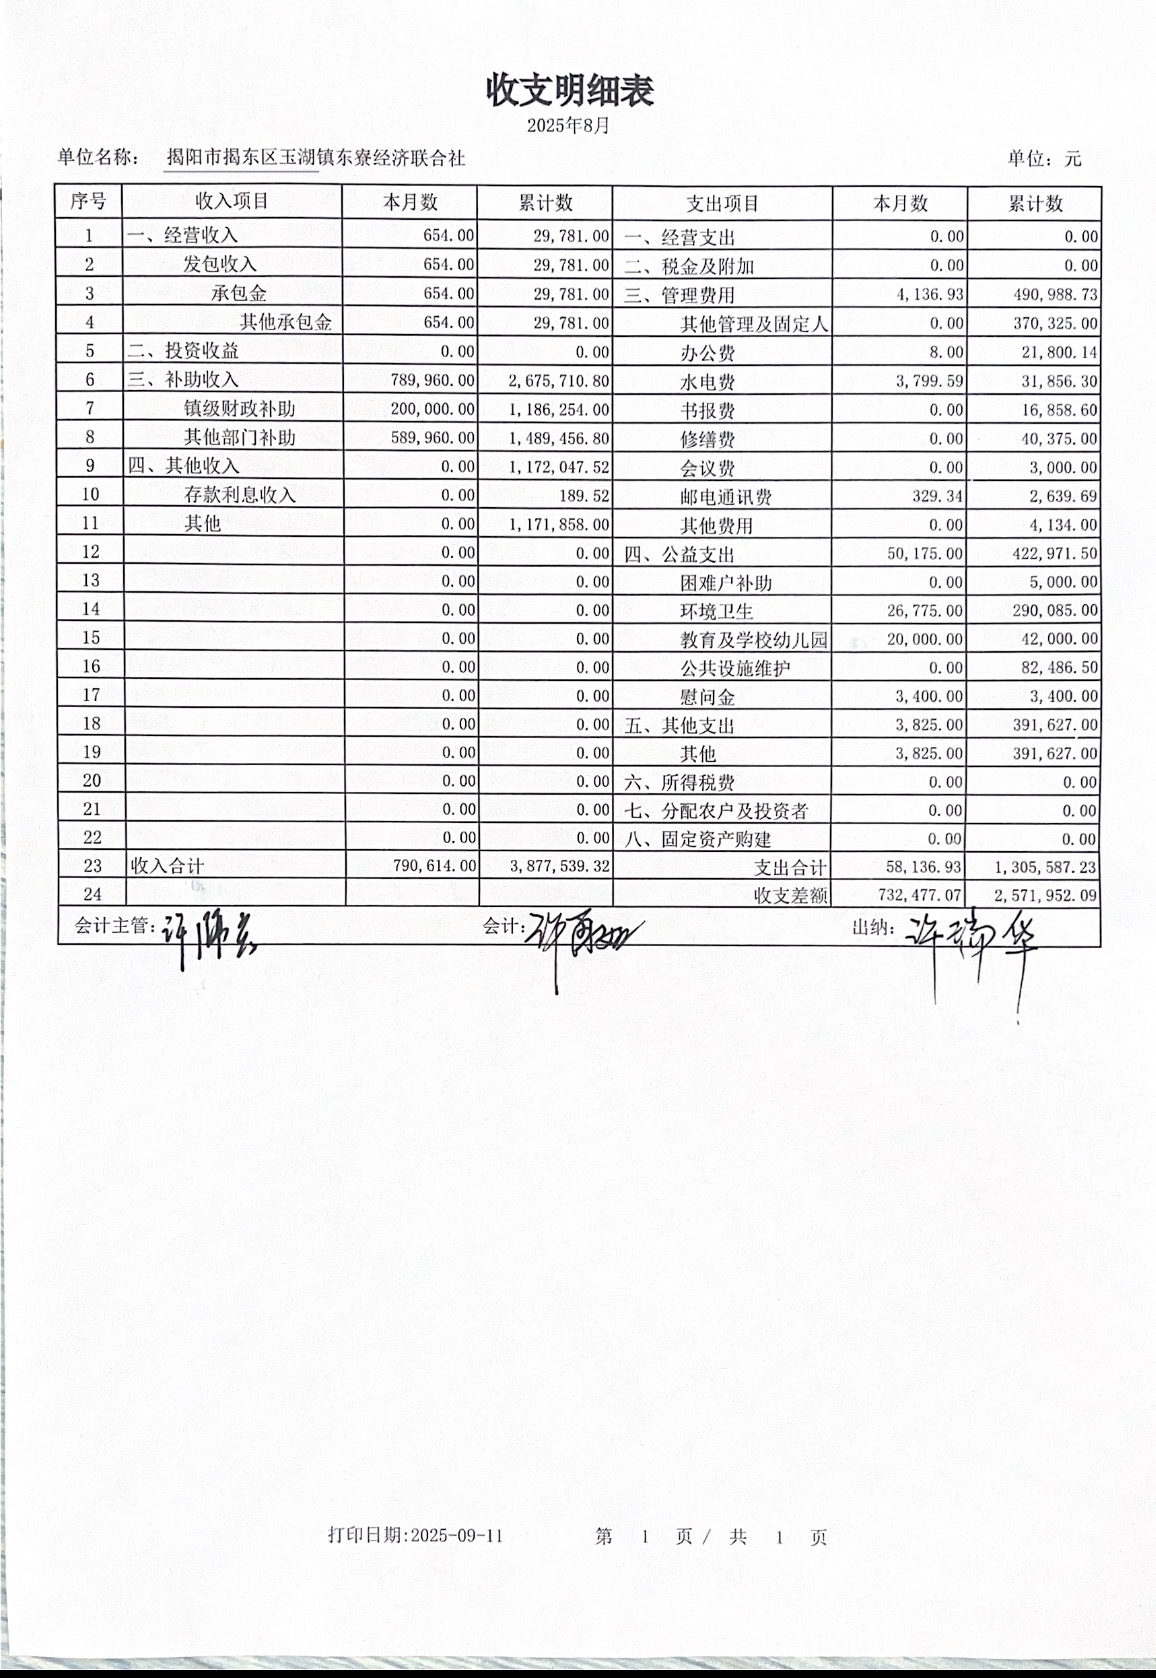 收支明细表
2025年8月
单位名称： 揭阳市揭东区玉湖镇东寮经济联合社 单位：元
序号 收入项目 本月数 累计数 支出项目 本月数 累计数
1 一、经营收入 654.00 29,781.00 一、经营支出 0.00 0.00
2 发包收入 654.00 29,781.00 二、税金及附加 0.00 0.00
3 承包金 654.00 29,781.00 三、管理费用 4,136.93 490,988.73
4 其他承包金 654.00 29,781.00 其他管理及固定人 0.00 370,325.00
5 二、投资收益 0.00 0.00 办公费 8.00 21,800.14
6 三、补助收入 789,960.00 2,675,710.80 水电费 3,799.59 31,856.30
7 镇级财政补助 200,000.00 1,186,254.00 书报费 0.00 16,858.60
8 其他部门补助 589,960.00 1,489,456.80 修缮费 0.00 40,375.00
9 四、其他收入 0.00 1,172,047.52 会议费 0.00 3,000.00
10 存款利息收入 0.00 189.52 邮电通讯费 329.34 2,639.69
11 其他 0.00 1,171,858.00 其他费用 0.00 4,134.00
12 0.00 0.00 四、公益支出 50,175.00 422,971.50
13 0.00 0.00 困难户补助 0.00 5,000.00
14 0.00 0.00 环境卫生 26,775.00 290,085.00
15 0.00 0.00 教育及学校幼儿园 20,000.00 42,000.00
16 0.00 0.00 公共设施维护 0.00 82,486.50
17 0.00 0.00 慰问金 3,400.00 3,400.00
18 0.00 0.00 五、其他支出 3,825.00 391,627.00
19 0.00 0.00 其他 3,825.00 391,627.00
20 0.00 0.00 六、所得税费 0.00 0.00
21 0.00 0.00 七、分配农户及投资者 0.00 0.00
22 0.00 0.00 八、固定资产购建 0.00 0.00
23 收入合计 790,614.00 3,877,539.32 支出合计 58,136.93 1,305,587.23
24 收支差额 732,477.07 2,571,952.09
会计主管： 许 会计： 许 出纳： 许瑞华
打印日期:2025-09-11 第 1 页 / 共 1 页